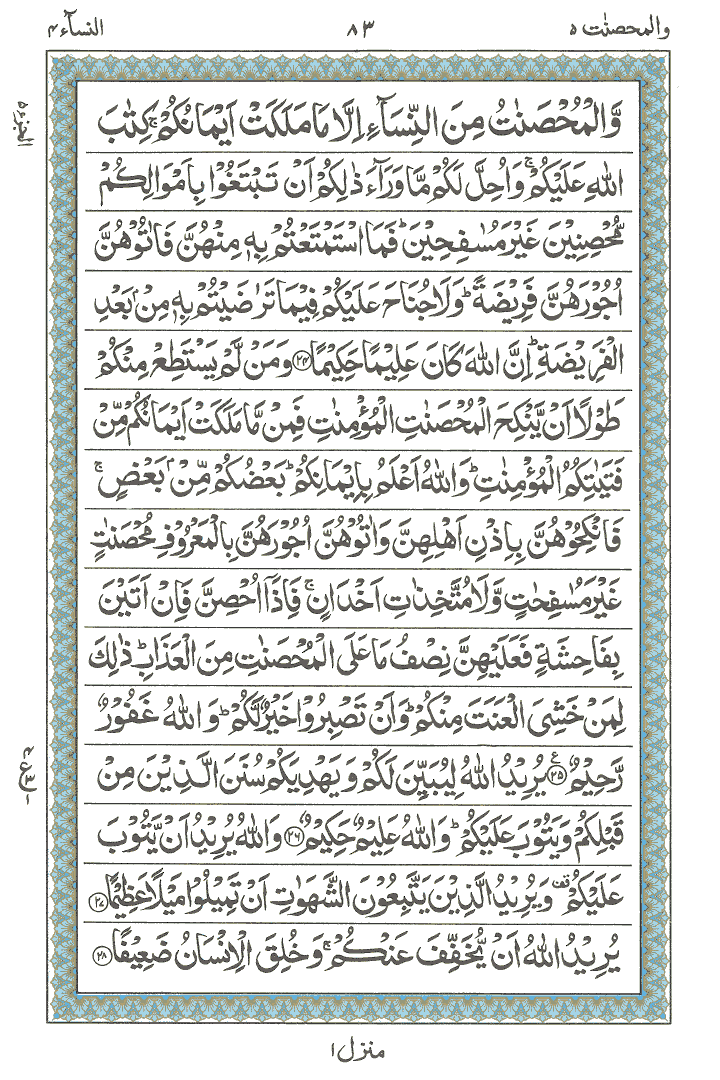 والمحصنٰت ٥ ٨٣ النسآء ٤
الجزء ٥
وَّالْمُحْصَنٰتُ مِنَ النِّسَآءِ اِلَّا مَا مَلَكَتْ اَيْمَانُكُمْ ۚ كِتٰبَ
اللّٰهِ عَلَيْكُمْ ۚ وَاُحِلَّ لَكُمْ مَّا وَرَآءَ ذٰلِكُمْ اَنْ تَبْتَغُوْا بِاَمْوَالِكُمْ
مُّحْصِنِيْنَ غَيْرَ مُسٰفِحِيْنَ ؕ فَمَا اسْتَمْتَعْتُمْ بِهٖ مِنْهُنَّ فَاٰتُوْهُنَّ
اُجُوْرَهُنَّ فَرِيْضَةً ؕ وَلَا جُنَاحَ عَلَيْكُمْ فِيْمَا تَرٰضَيْتُمْ بِهٖ مِنْۢ بَعْدِ
الْفَرِيْضَةِ ؕ اِنَّ اللّٰهَ كَانَ عَلِيْمًا حَكِيْمًا ﴿٢٤﴾ وَمَنْ لَّمْ يَسْتَطِعْ مِنْكُمْ
طَوْلًا اَنْ يَّنْكِحَ الْمُحْصَنٰتِ الْمُؤْمِنٰتِ فَمِنْ مَّا مَلَكَتْ اَيْمَانُكُمْ مِّنْ
فَتَيٰتِكُمُ الْمُؤْمِنٰتِ ؕ وَاللّٰهُ اَعْلَمُ بِاِيْمَانِكُمْ ؕ بَعْضُكُمْ مِّنْۢ بَعْضٍ ۚ
فَانْكِحُوْهُنَّ بِاِذْنِ اَهْلِهِنَّ وَاٰتُوْهُنَّ اُجُوْرَهُنَّ بِالْمَعْرُوْفِ مُحْصَنٰتٍ
غَيْرَ مُسٰفِحٰتٍ وَّلَا مُتَّخِذٰتِ اَخْدَانٍ ۚ فَاِذَاۤ اُحْصِنَّ فَاِنْ اَتَيْنَ
بِفَاحِشَةٍ فَعَلَيْهِنَّ نِصْفُ مَا عَلَى الْمُحْصَنٰتِ مِنَ الْعَذَابِ ؕ ذٰلِكَ
لِمَنْ خَشِيَ الْعَنَتَ مِنْكُمْ ؕ وَاَنْ تَصْبِرُوْا خَيْرٌ لَّكُمْ ؕ وَاللّٰهُ غَفُوْرٌ
رَّحِيْمٌ ﴿٢٥﴾ يُرِيْدُ اللّٰهُ لِيُبَيِّنَ لَكُمْ وَيَهْدِيَكُمْ سُنَنَ الَّذِيْنَ مِنْ
قَبْلِكُمْ وَيَتُوْبَ عَلَيْكُمْ ؕ وَاللّٰهُ عَلِيْمٌ حَكِيْمٌ ﴿٢٦﴾ وَاللّٰهُ يُرِيْدُ اَنْ يَّتُوْبَ
عَلَيْكُمْ ۫ وَيُرِيْدُ الَّذِيْنَ يَتَّبِعُوْنَ الشَّهَوٰتِ اَنْ تَمِيْلُوْا مَيْلًا عَظِيْمًا ﴿٢٧﴾
يُرِيْدُ اللّٰهُ اَنْ يُّخَفِّفَ عَنْكُمْ ۚ وَخُلِقَ الْاِنْسَانُ ضَعِيْفًا ﴿٢٨﴾
منزل ١